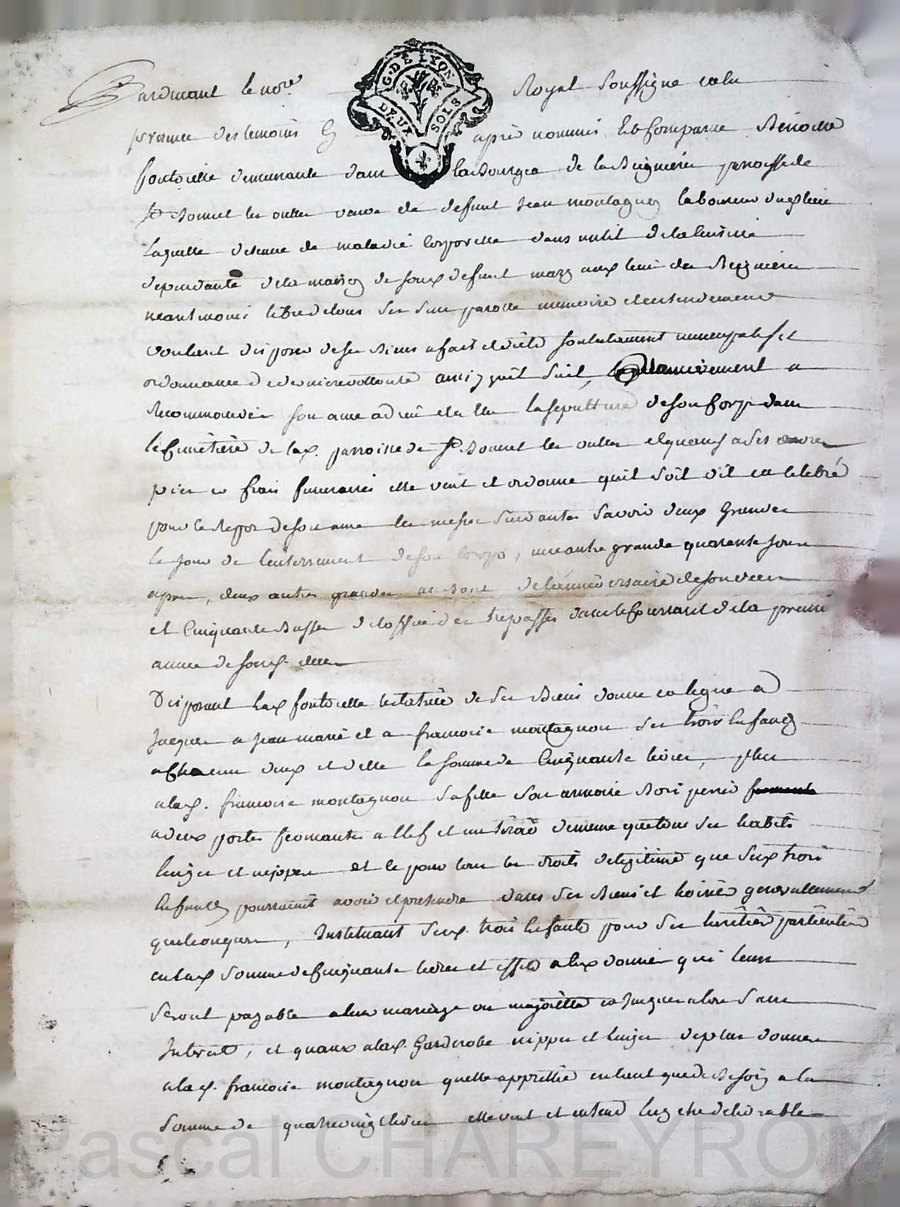 Pardevant le nore Royal Soussigne et en la
G. DE LYON
DEUX SOLS
presence des temoins cy apres nommés Est Comparue Benoite
fontvielle demeurante dans la Bourgea de la Reigniere parroisse de
St Bonnet les oulles vauve de deffunt Jean montagnon laboureur dudt lieu
Laquelle detenue de maladie Corporelle dans un lit de la cuisine
dependante de la maison de feux deffunt mary aux lieu de la Reigniere
neantmoins libre de tous ses sens parolle memoire et entendement
voulant disposer de ses Biens a fait et dicté son testament nuncupatif et
ordonnance de derniere vollonté ainsi quil suit, premierement a
Recommandé son ame a dieu elu la sepulture de son Corps dans
le Cimetiere de lad. parroisse de St Bonnet les oulles et quant a ses œuvres
pies et frais funeraires elle veut et ordonne quil soit dit et celebré
pour le Repos de son ame les messes Suivantes Savoir deux Grandes
le jour de lenterrement de son Corps, une autre grande quarente jours
apres, deux autres grandes au bout de lanniversaire de son deces
et Cinquante Basses de loffice des trepassés dans le Courrant de la premiere
année de sond. deces
Disposant lad. fontvielle testatrice de ses Biens donne et legue a
Jacques a Jean marie et a francoise montagnon ses trois Enfants
a Chacun deux et delle la somme de Cinquante livres, plus
a lad. francoise montagnon sa fille son armoire Bois
a deux portes fermantes a Clef et un tiroir de meme que tous ses habits
linges et nippes et le pour tous les droits de legitime que sesd. trois
Enfants pourraient avoir et pretendre dans ses Biens et hoirie generallement
quelconques, Instituant sesd. trois Enfants pour ses heritiers particuliers
en lad. somme de Cinquante livres et effets a eux donnes qui leurs
seront payable a leur mariage ou majorité et jusques alors sans
Interest, et quant a lad. Garderobe nippes et linges de plus donnes
a lad. francoise montagnon quelle apprecie en tant que de Besoin a la
somme de quatrevingt livres elle veut et entend
Pascal CHAREYRON